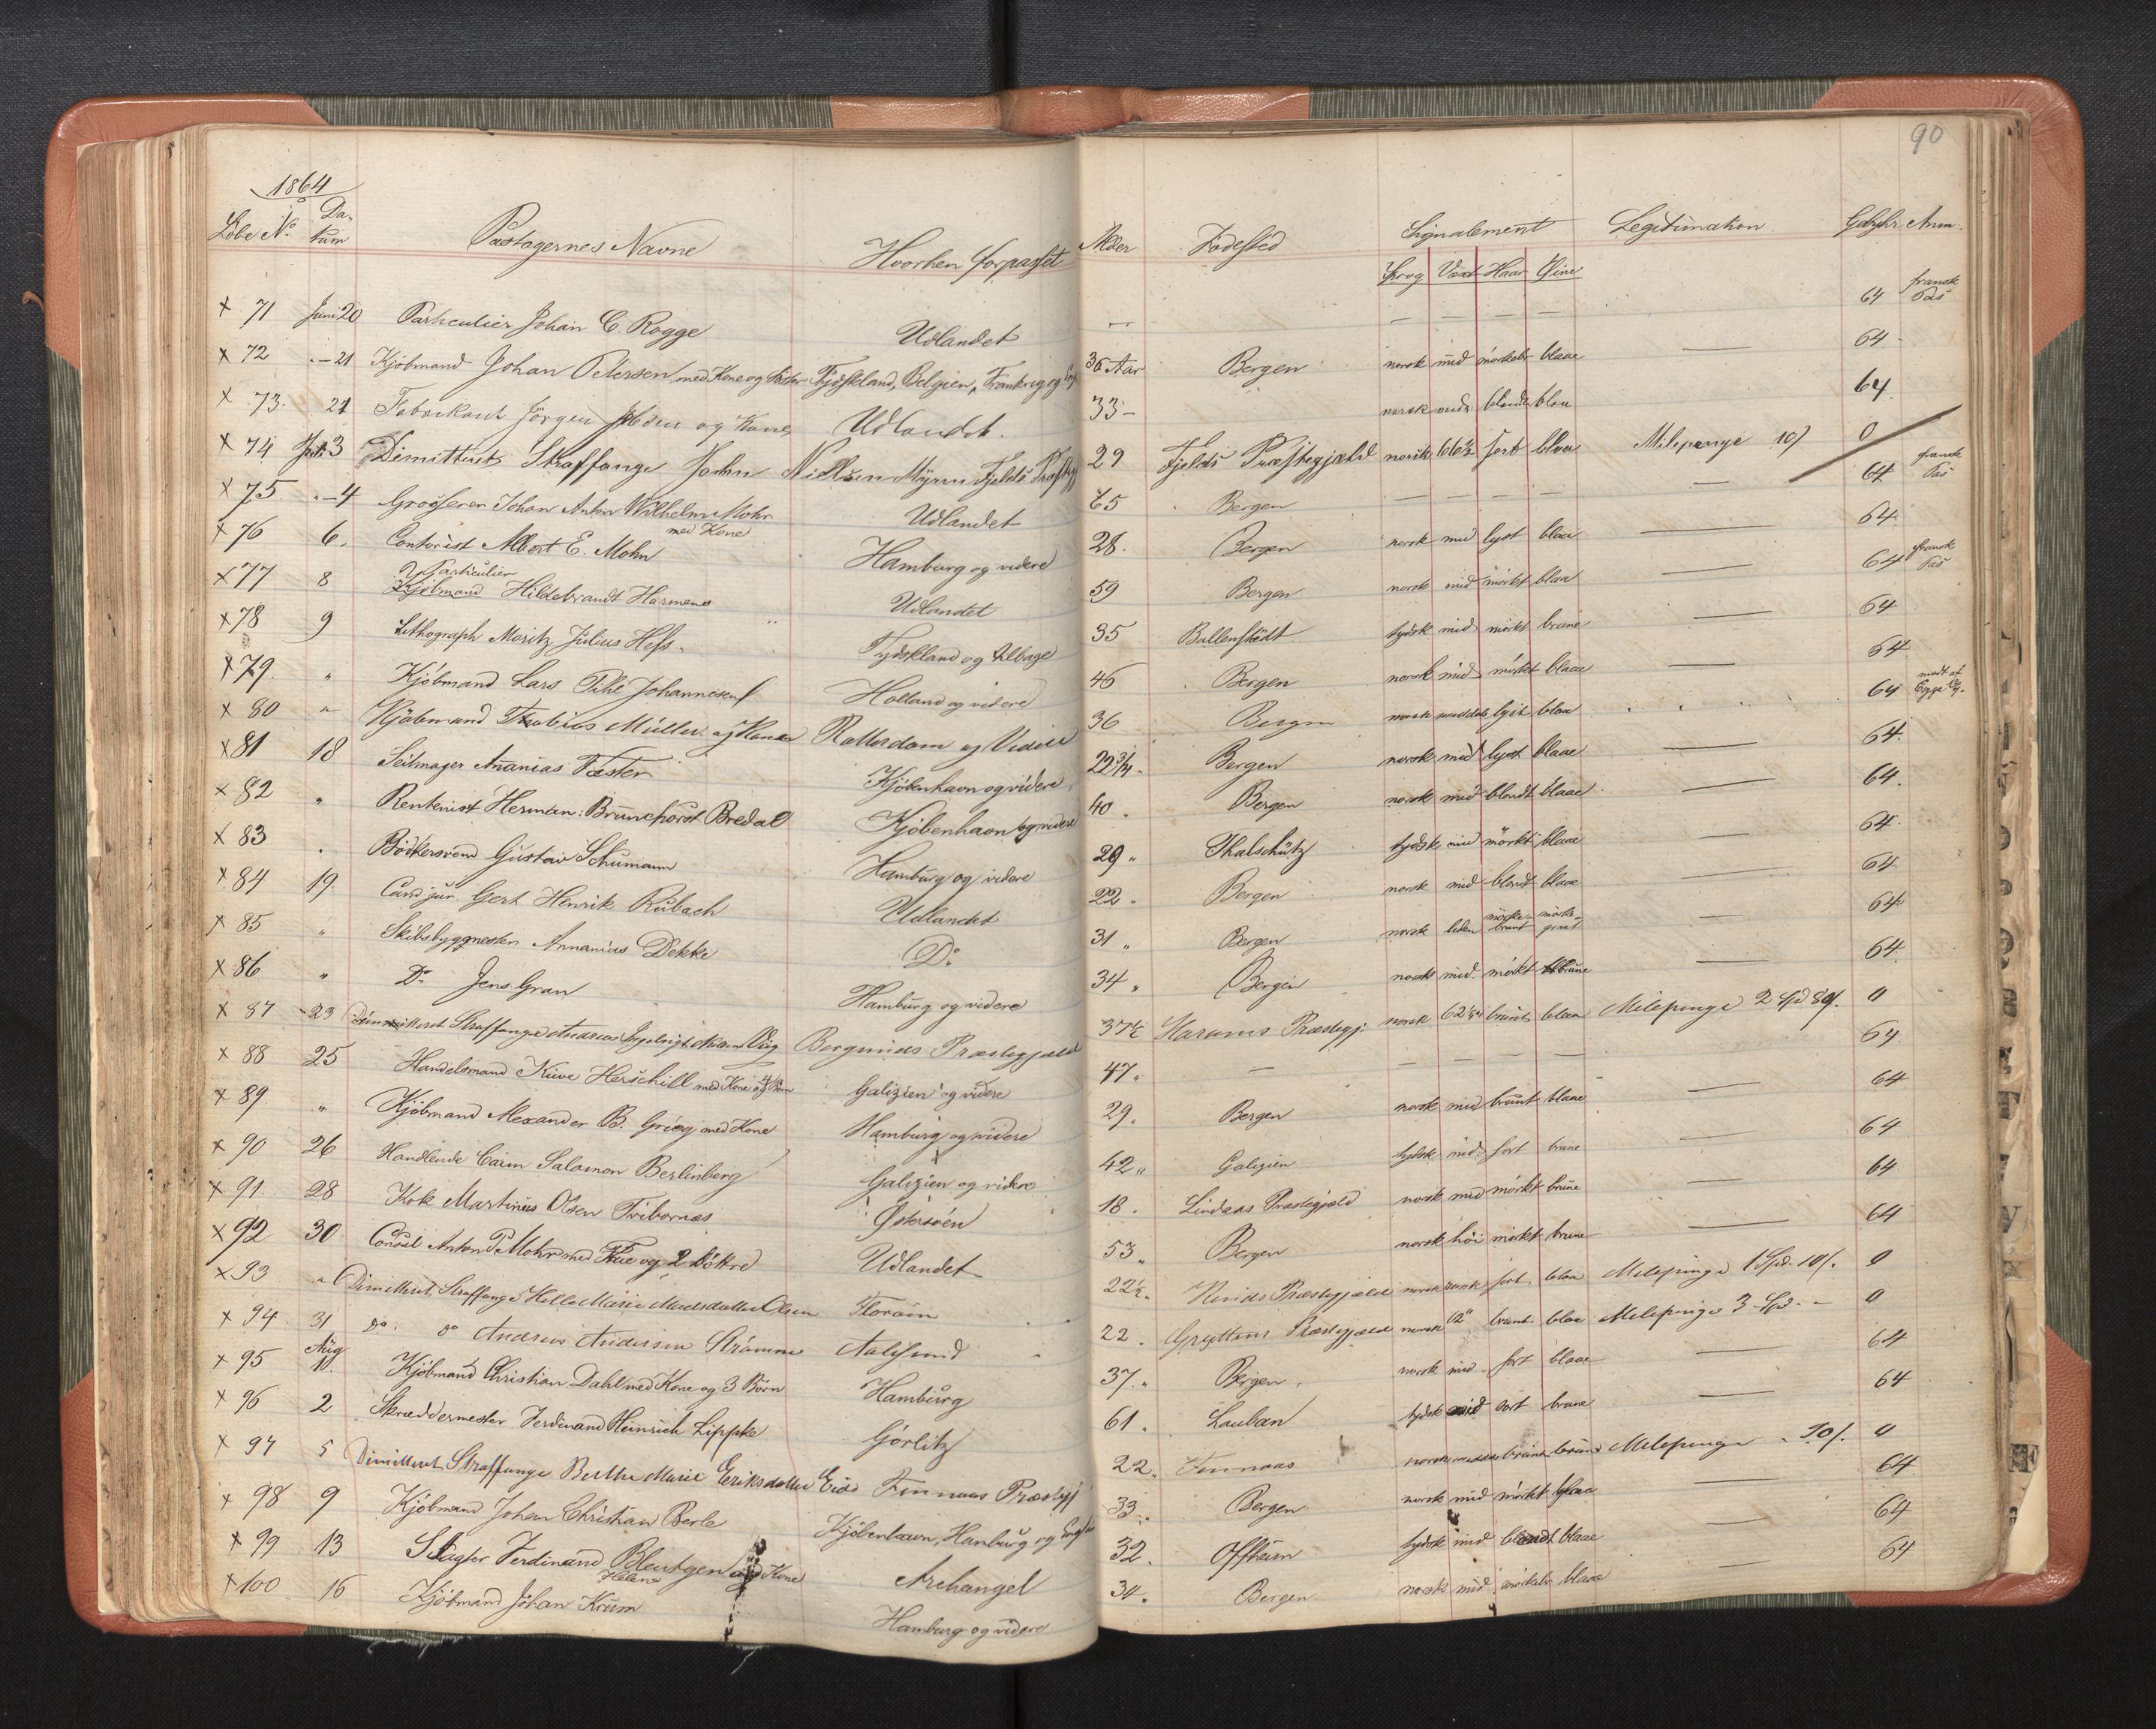 90
1864
Løbe No. Datum Pastagernes Navne Hvorhen forpasset Alder Fødested Signalement Legitimation Gebyhr Anm.
Sprog Væxt Haar Øine
x 71 Juni 20 Particulier Johan C. Rogge Udlandet — — — — — 64 fransk Pas
x 72 " — 21 Kjøbmand Johan Petersen med Kone og Tydskland, Belgien, Frankrig og 36 Aar Bergen norsk mid blaae — 64
x 73. 21 Fabrikant Jørgen og Kone Udlandet. 33 — norsk mid blonde blaa 64.
x 74 Juli 3 Dimitteret Straffange John Nielsen Myren Fjelds 29 Fjelds Præstegjæld norsk 66½ sort blaa Milepenge 10/ 0
x 75 " — 4 Grosserer Johan Anton Wilhelm Mohr med Kone Udlandet 65 Bergen — — — — — 64 fransk Pas
x 76 6. Contorist Albert E. Mohn Hamburg og videre 28. Bergen norsk mid lyst blaa — 64
x 77 8 Particulier Kjøbmand Hildebrandt Harmens Udlandet 59 Bergen norsk mid mørkt blaa — 64 fransk Pas
x 78 9 Lithograph Moritz Julius Hess. Tydskland og tilbage 35 Ballenstædt tydsk mid mørkt brune — 64
x 79. " Kjøbmand Lars Pihl Johannesen Holland og videre 46 Bergen norsk mid mørkt blaae — 64
x 80 " Kjøbmand Tobias Müller og Kone Rotterdam og Videre 36 Bergen norsk middels lyst blaa " " " 64
x 81 18 Seilmager Ananias Fæster Kjøbenhavn og videre 22 3/4. Bergen norsk mid lyst blaae — 64.
x 82 " Rentenist Herman Brunchorst Bredal Kjøbenhavn og videre 40. Bergen norsk mid blondt blaae — 64.
x 83 " Bødkersvend Gustav Schumann Hamburg og videre 29 " Thalschütz tydsk mid mørkt blaae — 64
x 84 19. Cand jur. Gert Henrik Rubach Udlandet 22 " Bergen norsk mid blondt blaae — 64.
x 85 " Skibsbyggmester Annanias Dekke Do 31 " Bergen norsk liden mørkebrunt — 64
x 86 " Do Jens Gran Hamburg og videre 34 " Bergen norsk mid. mørkt brune — 64.
x 87 23 Dimitteret Straffange Andreas Bergsunds Præstegjæld 37½ Harams Præstegj. norsk brunt blaa Milepenge 2 Spd 80/. 0
x 88 25 Handelsmand Kiwe Herschill med Kone og Børn Galizien og videre 47. — — — — — 64
x 89 " Kjøbmand Alexander B. Grieg med Kone Hamburg og videre 29. Bergen norsk mid brunt blaae — 64
x 90 26 Handlende Caim Salamon Berlinberg Galizien og videre 42 " Galizien tydsk mid sort brune — 64
x 91. 28 Kok Martinus Olsen Østersøen 18. Lindaas Præstegjæld norsk mid mørkt brune — 64
x 92 30 Consul Anton P Mohr med Frue og 2 Døttre Udlandet 53 " Bergen norsk høi mørkt brune — 64
x 93 " Dimitteret Straffange Helle Marie Madsdatter Olsen Florøen 22½. Præstegjæld norsk sort blaa Milepenge 1 Spd. 10/. 0
x 94 31 do. do Andreas Andersen Strømme Aalesund 22. Gryttens Præstegjæld norsk 62" brunt blaa Milepenge 3 Spd. — 0
x 95 Aug Kjøbmand Christian Dahl med Kone og 3 Børn Hamburg 37 " Bergen. norsk mid sort blaae — 64
x 96 2 Skræddermester Ferdinand Heinrich Lippke Görlitz 61. Lauban tydsk mid sort brune — 64
x 97 5 Dimitteret Straffange Berthe Marie Eriksdatter Eide Finnaas Præstegj 22. Finnaas norsk brunt Milepenge " 30/. 0
x 98 9 Kjøbmand Johan Christian Berle Kjøbenhavn, Hamburg og 33. Bergen norsk mid mørkt blaae — 64
x 99 13 Slagter Ferdinand Bleutgen og Kone Helene Archangel 32. Offheim tydsk mid blondt blaae — 64
x 100 16 Kjøbmand Johan Krum Hamburg og videre 34. Bergen norsk mid blaae — 64